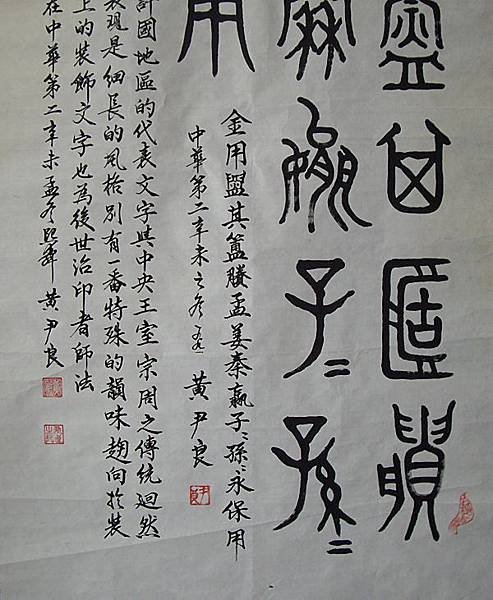 其
秦嬴子〻孫〻
用
金用盟其簠媵孟姜秦嬴子〻孫〻永保用
中華第二辛未之冬 黃尹良
許國地區的代表文字與中央王室宗周之傳統迴然
表現是細長的風格別有一番特殊的韻味趨向於裝
上的裝飾文字也為後世治印者師法
在中華第二辛未孟冬 黃尹良